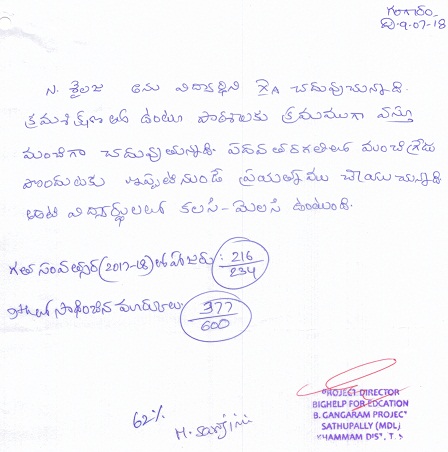 గంగారం.
ది-9-07-18
N. శైలజ అను విద్యార్థిని X A చదువుచున్నాది.
క్రమశిక్షణతో ఉంటూ పాఠశాలకు క్రమముగా వస్తూ
మంచిగా చదువుతున్నాది. పదవ తరగతిలో మంచి గ్రేడు
పొందుటకు ఇప్పటి నుండే ప్రయత్నము చేయుచున్నాది
తోటి విద్యార్థులతో కలసి-మెలసి ఉంటుంది.
గత సంవత్సర (2017-18) లో హాజరు : 216/234
లో సాధించిన మార్కులు 377/600
62%
M. Sarojini
PROJECT DIRECTOR
BIGHELP FOR EDCATION
B. GANGARAM PROJEC
SATHUPALLY (MDL)
KHAMMAM DIST, T.S